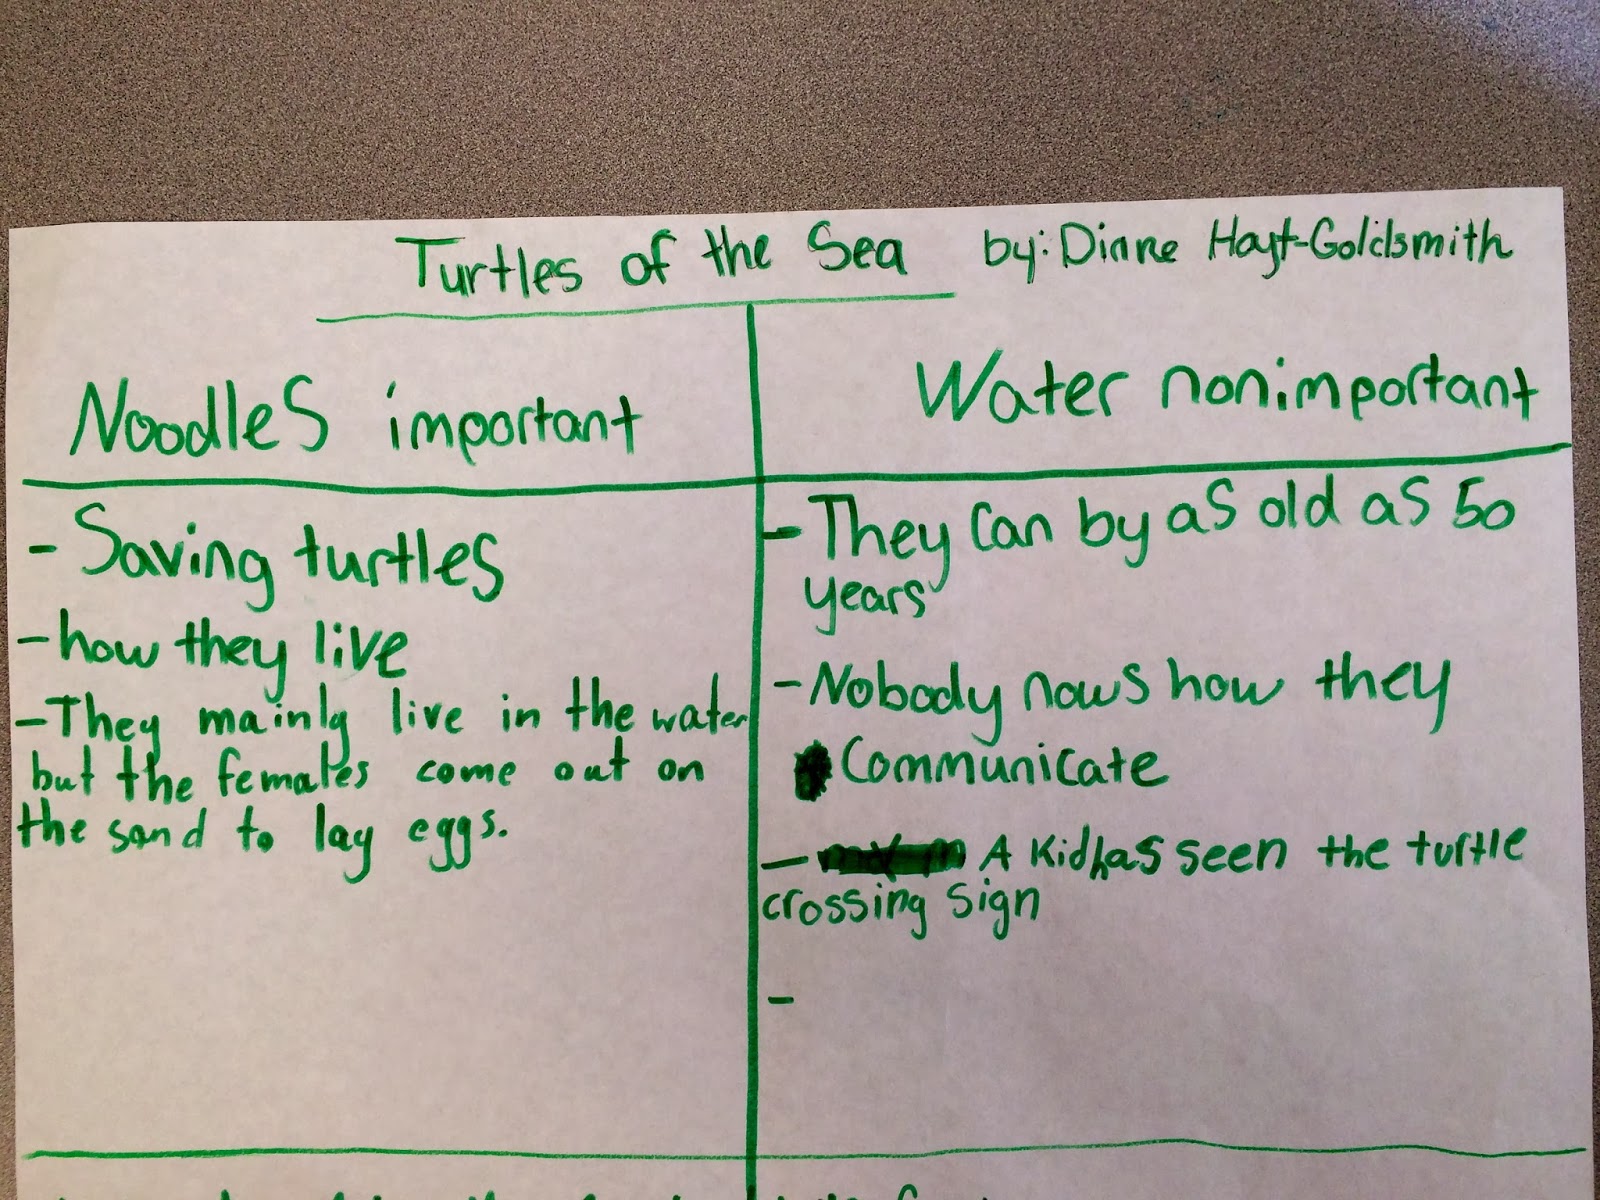 Turtles of the Sea by: Diane Hoyt-Goldsmith
Noodles important
Water nonimportant
- Saving turtles
- how they live
- They mainly live in the water
but the females come out on
the sand to lay eggs.
- They can by as old as 50
years
- Nobody nows how they
Communicate
- A kid has seen the turtle
crossing sign
-